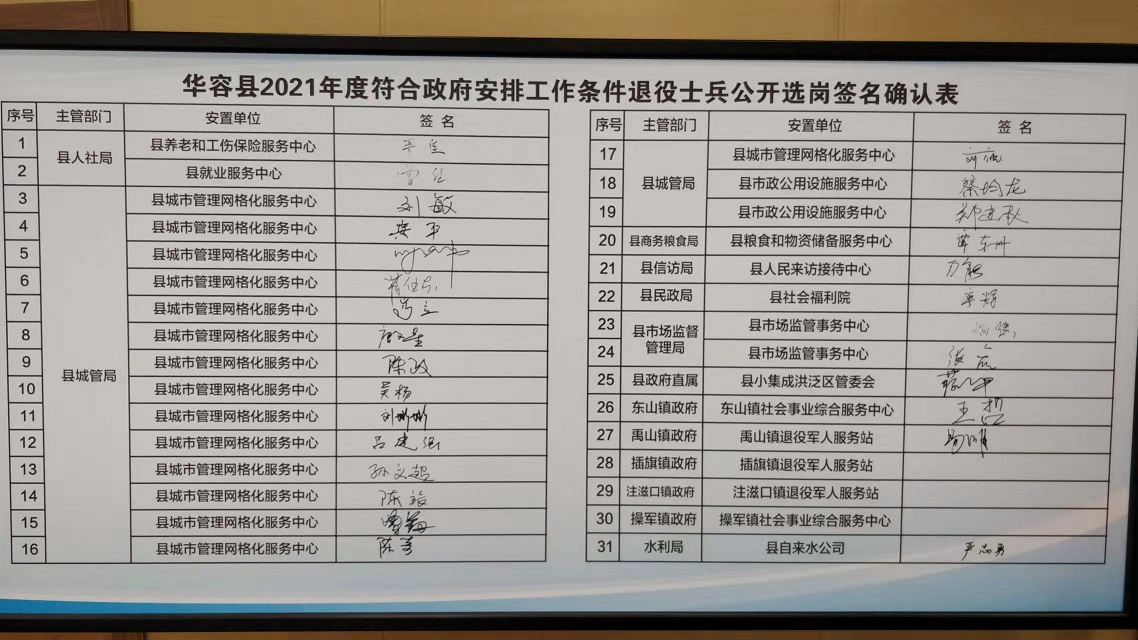 华容县2021年度符合政府安排工作条件退役士兵公开选岗签名确认表
序号 主管部门 安置单位 签名
1 县人社局 县养老和工伤保险服务中心
2 县就业服务中心
3 县城管局 县城市管理网格化服务中心 刘敏
4 县城市管理网格化服务中心
5 县城市管理网格化服务中心
6 县城市管理网格化服务中心
7 县城市管理网格化服务中心
8 县城市管理网格化服务中心
9 县城市管理网格化服务中心 陈政
10 县城市管理网格化服务中心 吴杨
11 县城市管理网格化服务中心 刘彬彬
12 县城市管理网格化服务中心 吕建强
13 县城市管理网格化服务中心 孙文超
14 县城市管理网格化服务中心
15 县城市管理网格化服务中心
16 县城市管理网格化服务中心
序号 主管部门 安置单位 签名
17 县城管局 县城市管理网格化服务中心
18 县市政公用设施服务中心 蔡均龙
19 县市政公用设施服务中心
20 县商务粮食局 县粮食和物资储备服务中心
21 县信访局 县人民来访接待中心
22 县民政局 县社会福利院
23 县市场监督管理局 县市场监管事务中心
24 县市场监管事务中心
25 县政府直属 县小集成洪泛区管委会
26 东山镇政府 东山镇社会事业综合服务中心 王哲
27 禹山镇政府 禹山镇退役军人服务站
28 插旗镇政府 插旗镇退役军人服务站
29 注滋口镇政府 注滋口镇退役军人服务站
30 操军镇政府 操军镇社会事业综合服务中心
31 水利局 县自来水公司 严志勇